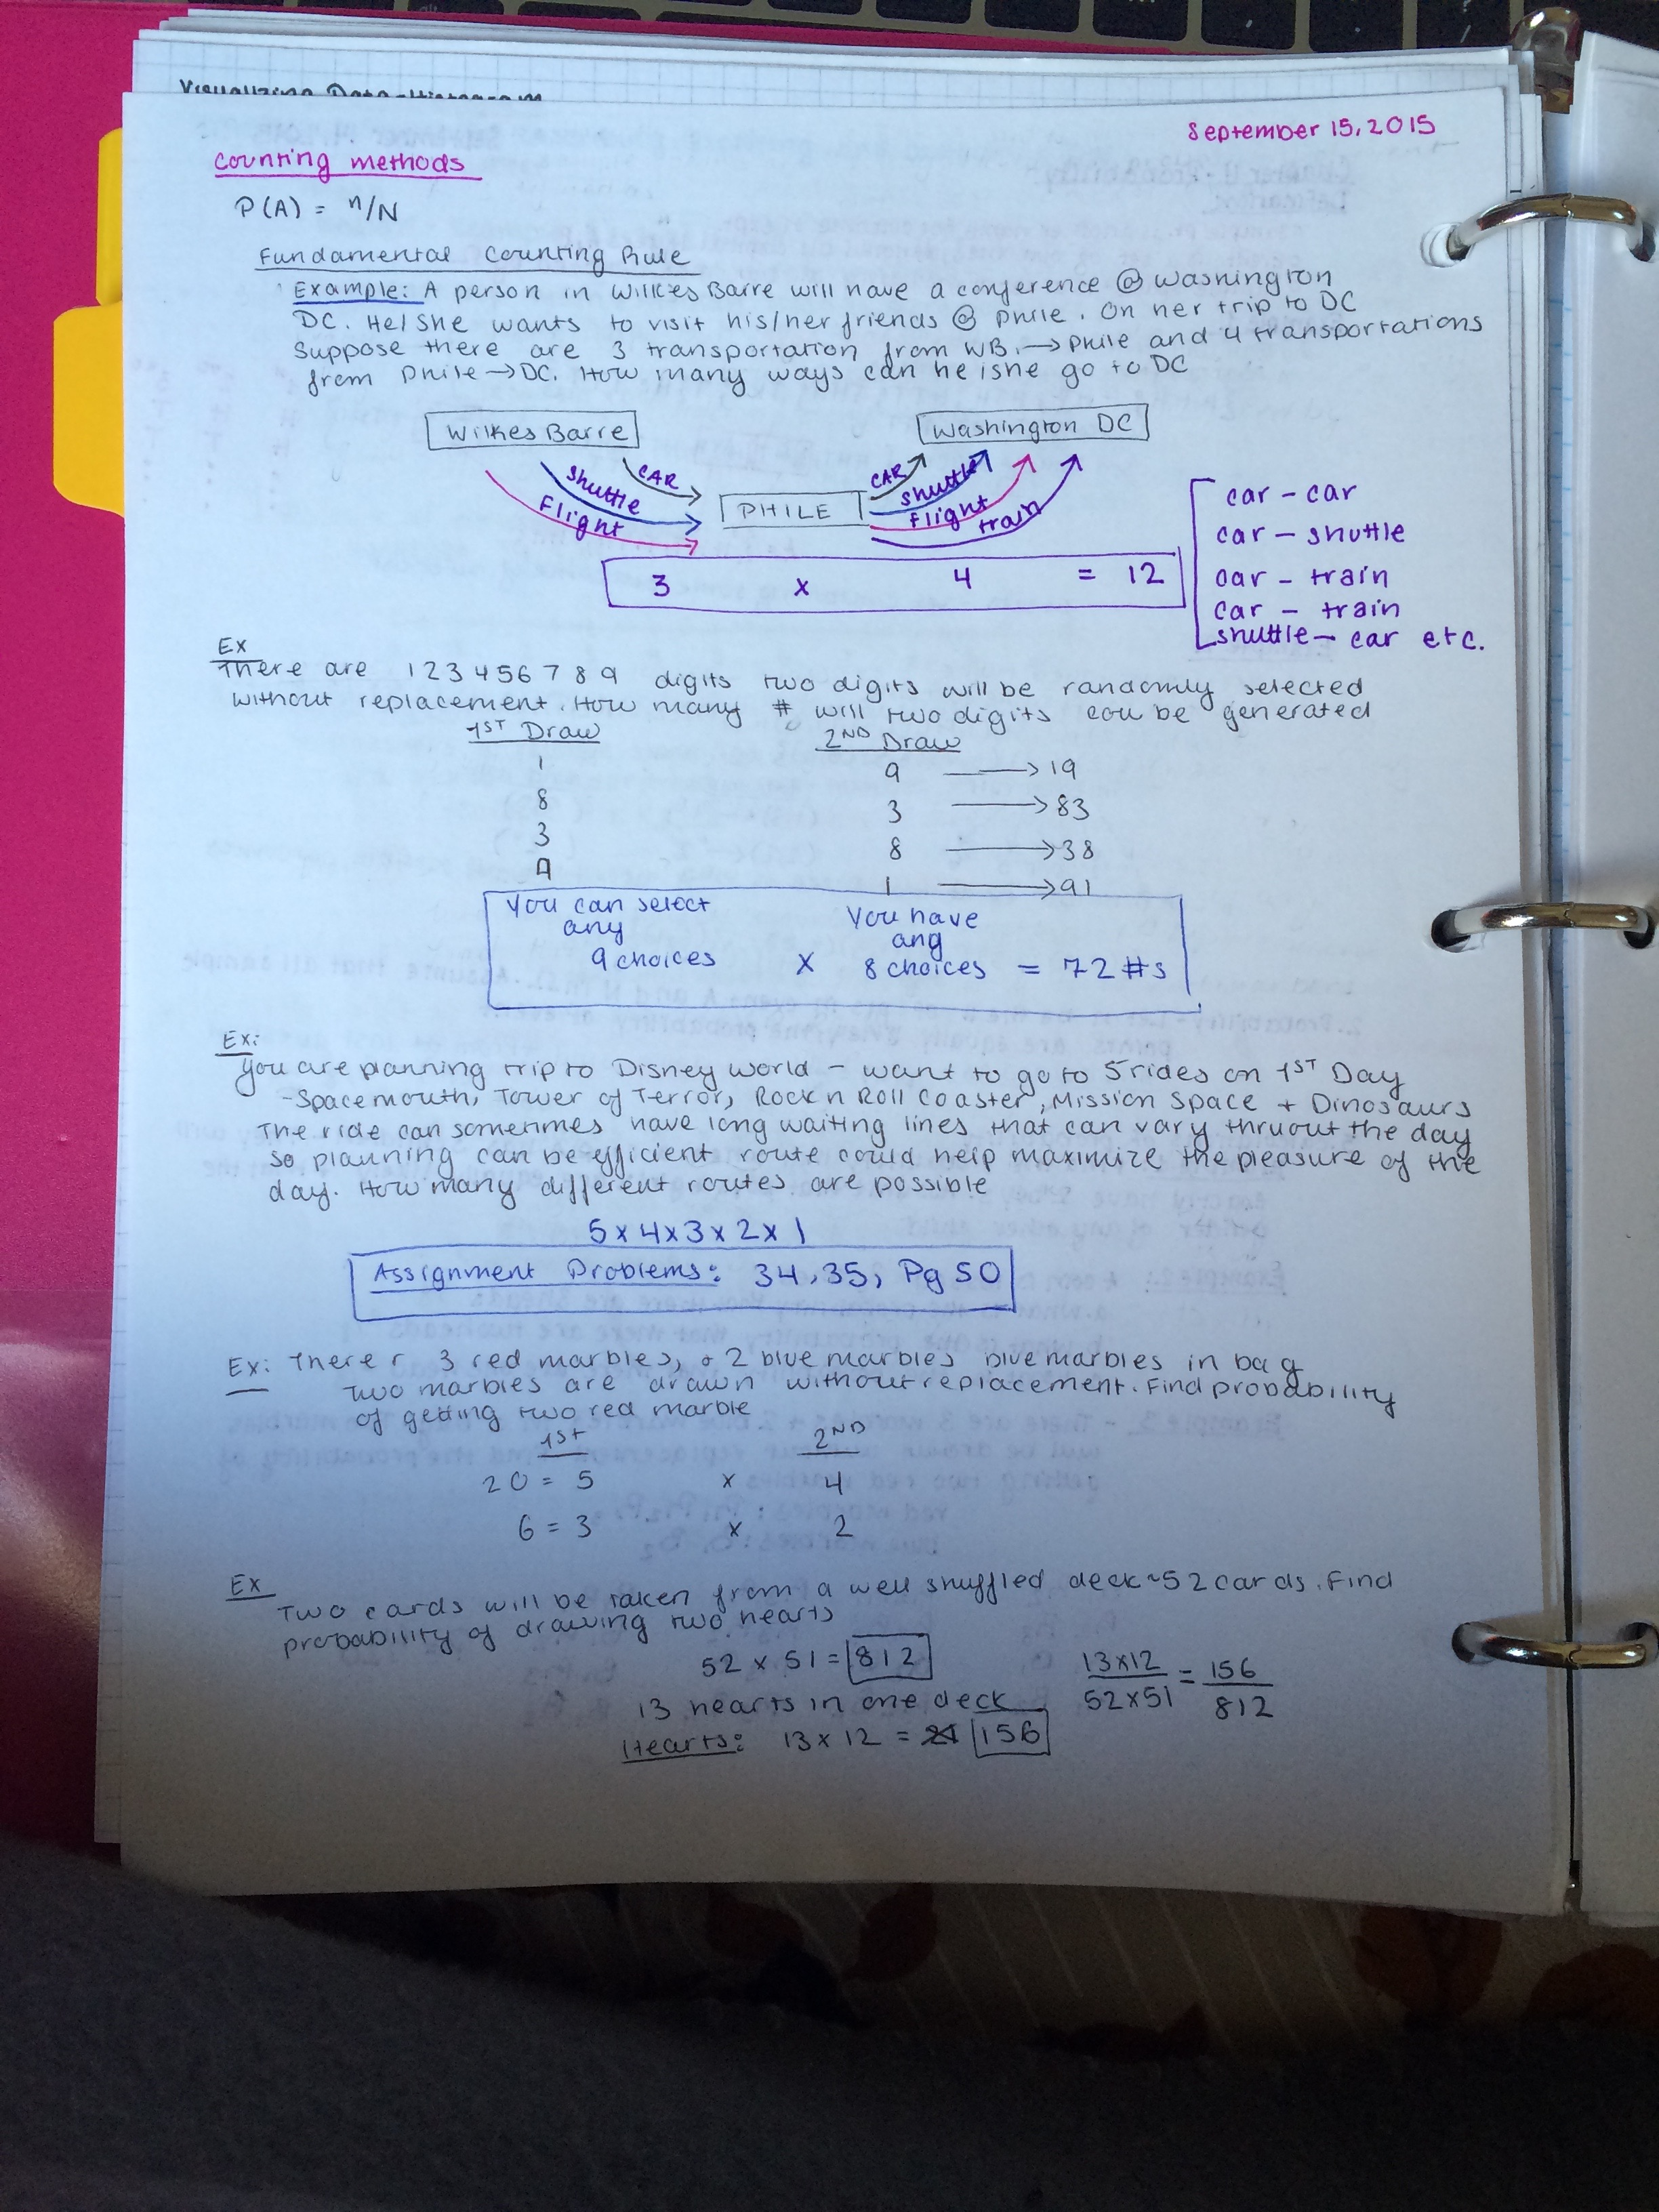 Visualizing Data - Histogram
September 15, 2015
Counting methods
P(A) = n/N
Fundamental Counting Rule
Example: A person in Wilkes Barre will have a conference @ Washington
DC. He/She wants to visit his/her friends @ Phile. On her trip to DC
Suppose there are 3 transportation from WB. → Phile and 4 transportations
from Phile → DC. How many ways can he/she go to DC
Wilkes Barre
Washington DC
CAR
Shuttle
Flight
PHILE
CAR
Shuttle
Flight
train
3 x 4 = 12
car - car
car - shuttle
car - train
car - train
shuttle - car etc.
Ex
There are 1 2 3 4 5 6 7 8 9 digits two digits will be randomly selected
without replacement. How many # will two digits cou be generated
1ST Draw 2ND Draw
1 9 → 19
8 3 → 83
3 8 → 38
9 1 → 91
You can select You have
any any
9 choices x 8 choices = 72 #s
Ex:
You are planning trip to Disney World - want to go to 5 rides on 1ST Day
- Space mouth, Tower of Terror, Rock n Roll Coaster, Mission Space + Dinosaurs
The ride can sometimes have long waiting lines that can vary thruout the day
so planning can be efficient route could help maximize the pleasure of the
day. How many different routes are possible
5 x 4 x 3 x 2 x 1
Assignment Problems: 34, 35, Pg 50
Ex: There r 3 red marbles, + 2 blue marbles blue marbles in bag
Two marbles are drawn without replacement. Find probability
of getting two red marble
1ST 2ND
20 = 5 x 4
6 = 3 x 2
Ex
Two cards will be taken from a well snuffled deck ~ 52 cards. Find
probability of drawing two hearts
52 x 51 = 812
13 x 12 / 52 x 51 = 156 / 812
13 hearts in one deck
Hearts: 13 x 12 = 156